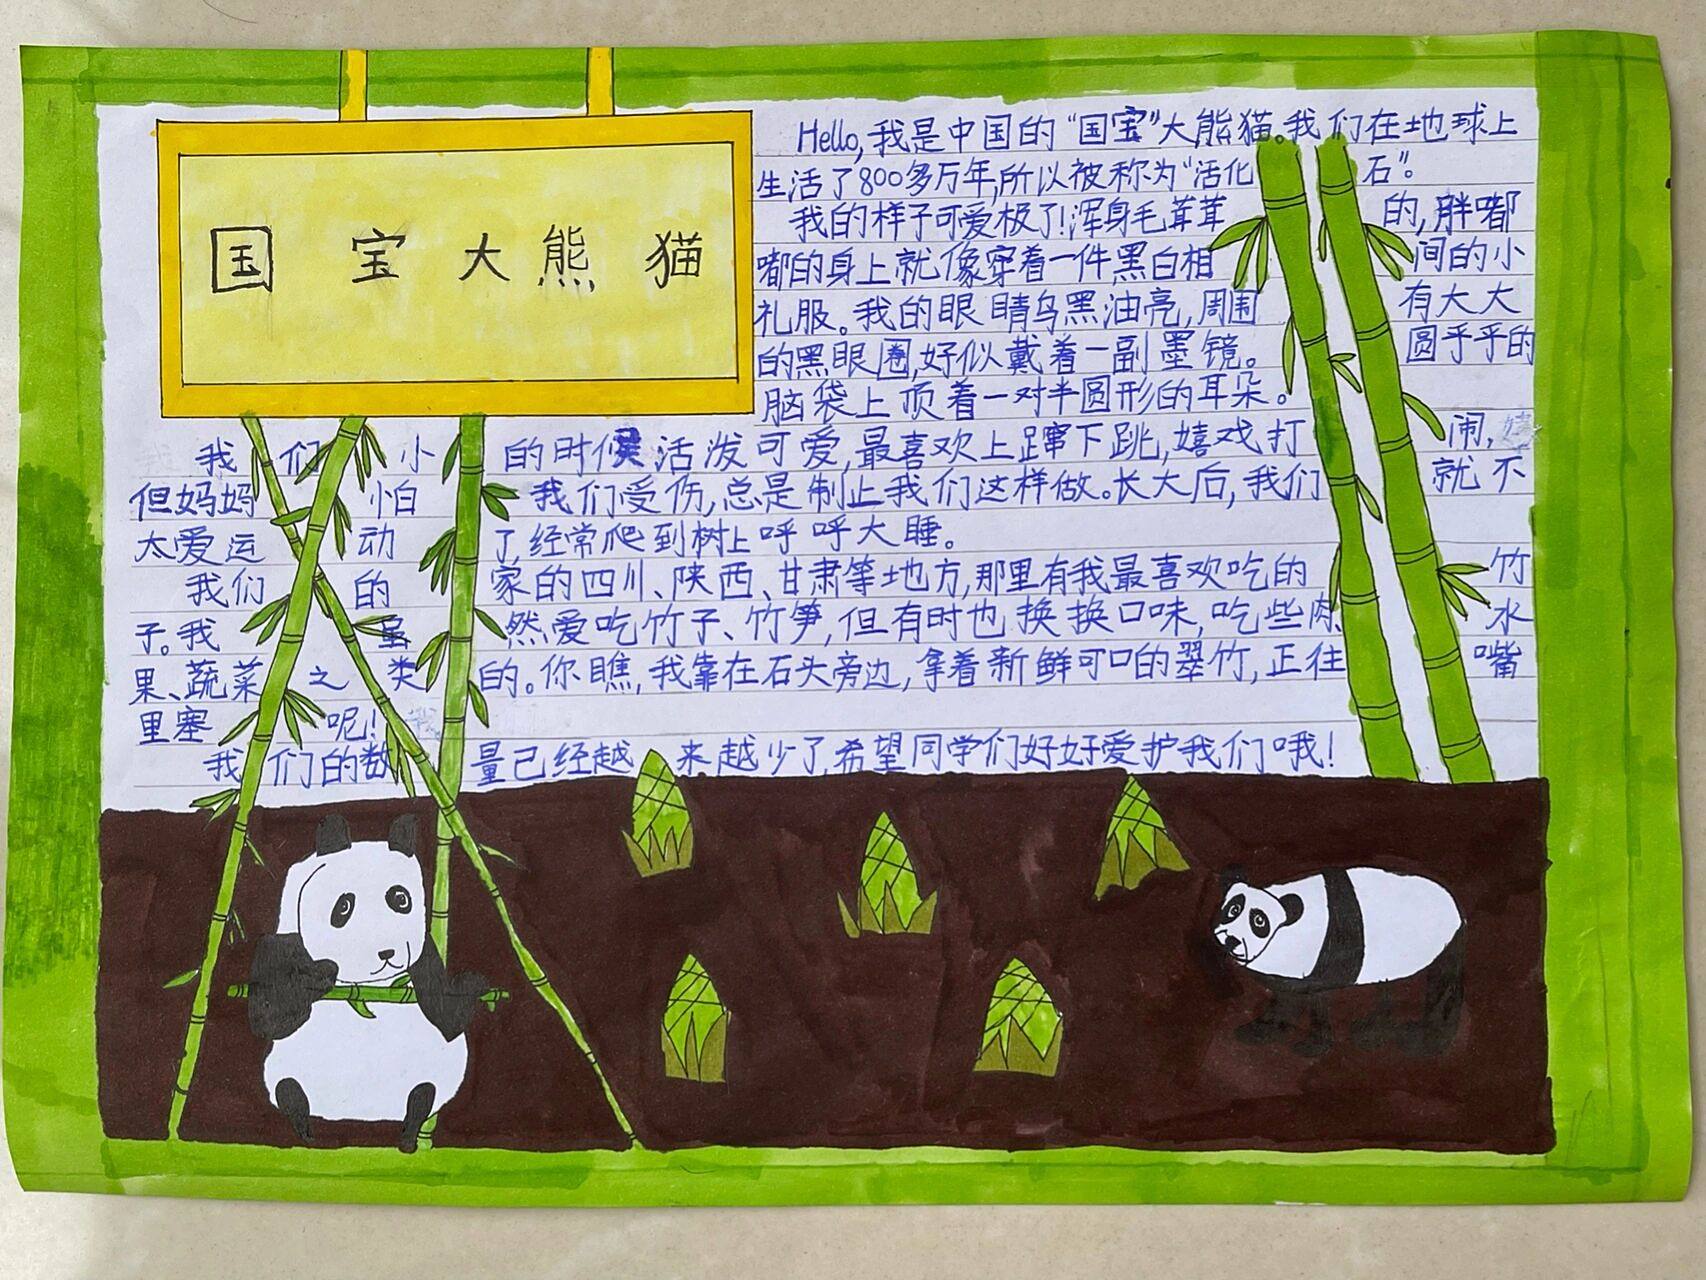 国宝大熊猫
Hello,我是中国的“国宝”大熊猫。我们在地球上
生活了800多万年,所以被称为“活化石”。
我的样子可爱极了!浑身毛茸茸的,胖嘟
嘟的身上就像穿着一件黑白相间的小
礼服。我的眼睛乌黑油亮,周围有大大
的黑眼圈,好似戴着一副墨镜。圆乎乎的
脑袋上顶着一对半圆形的耳朵。
我们小的时候活泼可爱,最喜欢上蹿下跳,嬉戏打闹,
但妈妈怕我们受伤,总是制止我们这样做。长大后,我们就不
太爱运动了,经常爬到树上呼呼大睡。
我们的家的四川、陕西、甘肃等地方,那里有我最喜欢吃的竹
子。我虽然爱吃竹子、竹笋,但有时也换换口味,吃些肉、水
果、蔬菜之类的。你瞧,我靠在石头旁边,拿着新鲜可口的翠竹,正往嘴
里塞呢!
我们的数量已经越来越少了,希望同学们好好爱护我们哦!